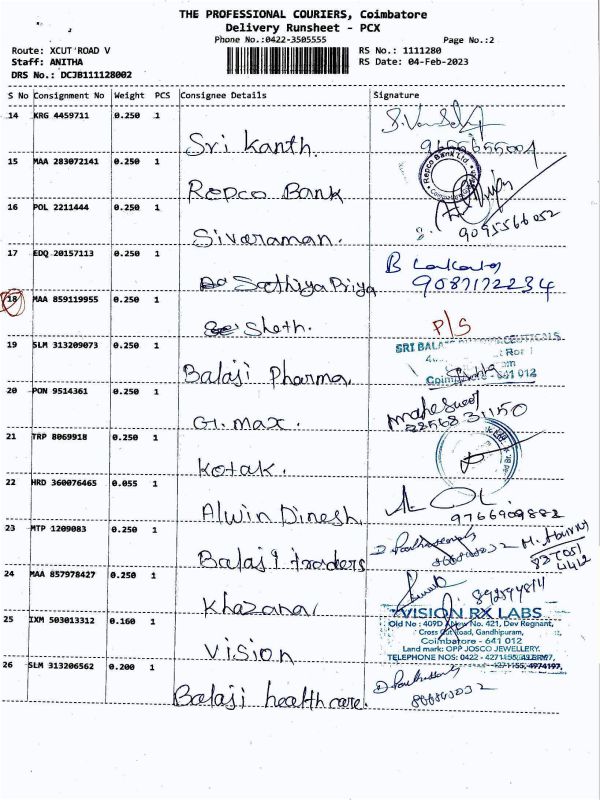 THE PROFESSIONAL COURIERS, Coimbatore
Delivery Runsheet - PCX
Phone No.:0422-3505555 Page No.:2
Route: XCUT ROAD V RS No.: 1111280
Staff: ANITHA RS Date: 04-Feb-2023
DRS No.: DCJB111128002
S No Consignment No Weight PCS Consignee Details Signature
14 KRG 4459711 0.250 1
Sri Kanth.
15 MAA 283072141 0.250 1
Repco Bank Ltd.
Repco Bank
16 POL 2211444 0.250 1
Sivaraman. 9095566052
17 EDQ 20157113 0.250 1
Sathiya Priya 9087172234
18 MAA 859119955 0.250 1
Sheth. P/S
19 SLM 313209073 0.250 1 SRI BALA
Balaji Pharma. 641 012
20 PON 9514361 0.250 1
G1. max.
21 TRP 8069918 0.250 1
Kotak.
22 HRD 360076465 0.055 1
Alwin Dinesh 9766909882
23 MTP 1209083 0.250 1
Balaji traders
24 MAA 857978427 0.250 1
Khazana
25 IXM 503013312 0.160 1 VISION RX LABS
Old No : 409D New No. 421, Dev Regnant,
Cross Cut Road, Gandhipuram,
Vision Coimbatore - 641 012
Land mark: OPP JOSCO JEWELLERY.
26 SLM 313206562 0.200 1 TELEPHONE NOS: 0422 -
4974197.
Balaji health care.